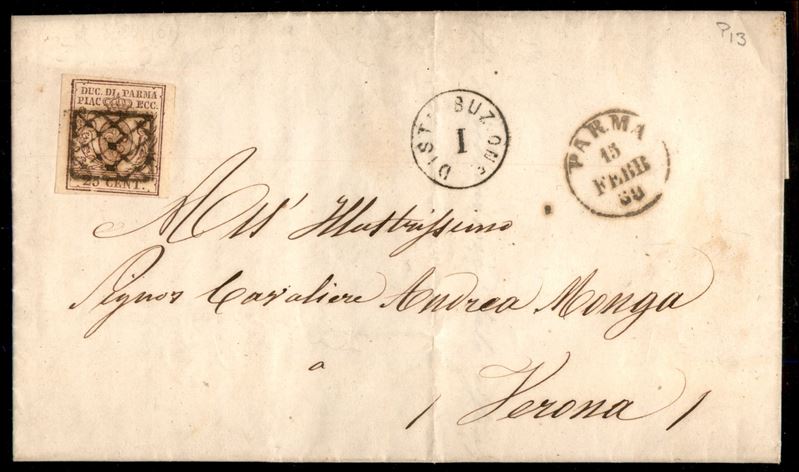 P13
DUC. DI PARMA
PIAC ECC.
25 CENT.
DISTRIBUZIONE
I
PARMA
15
FEBB
60
All' Illustrissimo
Signor Cavaliere Andrea Monga
a
/ Verona /